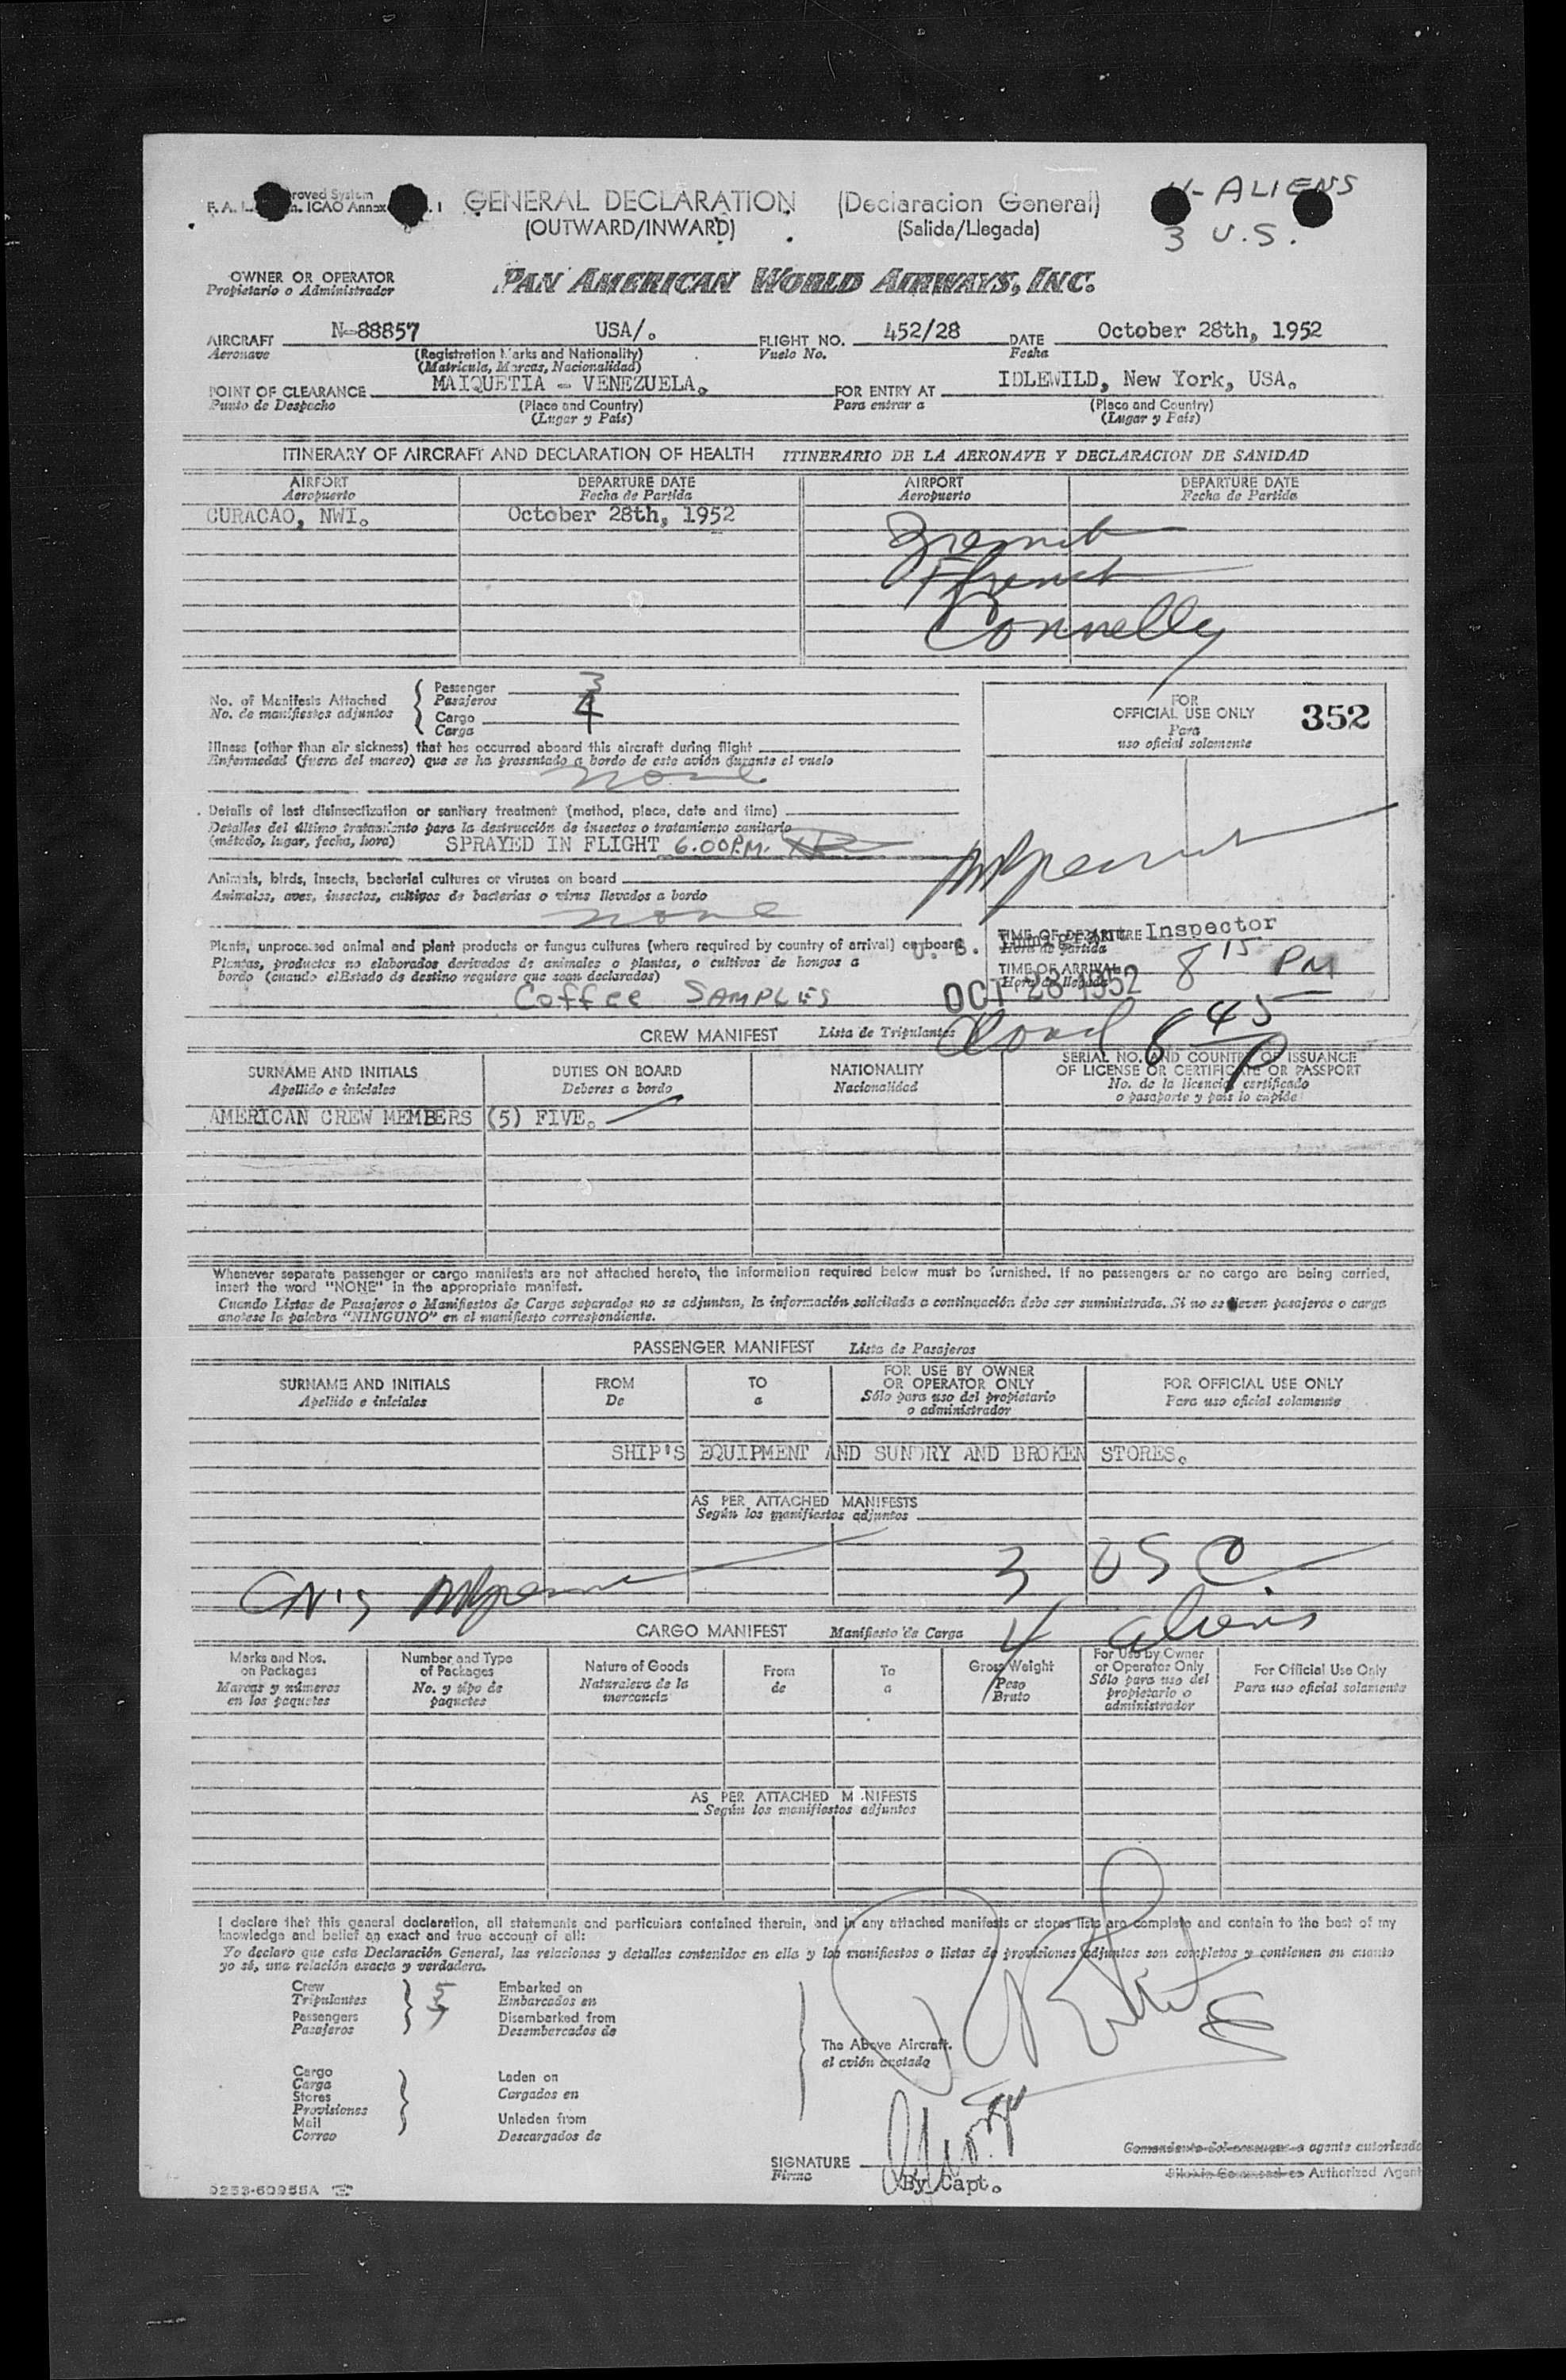 GENERAL DECLARATION (Declaracion General)
(OUTWARD/INWARD) (Salida/Llegada)
ALIENS
3 U.S.
OWNER OR OPERATOR
Propietario o Administrador
PAN AMERICAN WORLD AIRWAYS, INC.
AIRCRAFT N-88857 USA/. FLIGHT NO. 452/28 DATE October 28th, 1952
Aeronave (Registration Marks and Nationality) Vuelo No. Fecha
(Matricula, Marcas, Nacionalidad)
POINT OF CLEARANCE MAIQUETIA - VENEZUELA. FOR ENTRY AT IDLEWILD, New York, USA.
Punto de Despacho (Place and Country) Para entrar a (Place and Country)
(Lugar y País) (Lugar y País)
ITINERARY OF AIRCRAFT AND DECLARATION OF HEALTH ITINERARIO DE LA AERONAVE Y DECLARACION DE SANIDAD
AIRPORT DEPARTURE DATE AIRPORT DEPARTURE DATE
Aeropuerto Fecha de Partida Aeropuerto Fecha de Partida
CURACAO, NWI. October 28th, 1952
Connelly
No. of Manifests Attached
No. de manifiestos adjuntos
Passenger 3
Pasajeros
Cargo 4
Carga
FOR
OFFICIAL USE ONLY 352
Para
uso oficial solamente
Illness (other than air sickness) that has occurred aboard this aircraft during flight
Enfermedad (fuera del mareo) que se ha presentado a bordo de este avión durante el vuelo
none
Details of last disinsectization or sanitary treatment (method, place, date and time)
Detalles del último tratamiento para la destrucción de insectos o tratamiento sanitario
(método, lugar, fecha, hora) SPRAYED IN FLIGHT 6.00P.M.
Animals, birds, insects, bacterial cultures or viruses on board
Animales, aves, insectos, cultivos de bacterias o virus llevados a bordo
none
Plants, unprocessed animal and plant products or fungus cultures (where required by country of arrival) on board
Plantas, productos no elaborados derivados de animales o plantas, o cultivos de hongos a
bordo (cuando el Estado de destino requiere que sean declarados)
Coffee SAMPLES
TIME OF DEPARTURE Inspector
Hora de partida
TIME OF ARRIVAL 8 15 PM
Hora de llegada
OCT 28 1952
CREW MANIFEST Lista de Tripulantes
SURNAME AND INITIALS DUTIES ON BOARD NATIONALITY SERIAL NO. AND COUNTRY OF ISSUANCE
OF LICENSE OR CERTIFICATE OR PASSPORT
Apellido e iniciales Deberes a bordo Nacionalidad No. de la licencia, certificado
o pasaporte y país lo expide
AMERICAN CREW MEMBERS (5) FIVE.
Whenever separate passenger or cargo manifests are not attached hereto, the information required below must be furnished. If no passengers or no cargo are being carried,
insert the word "NONE" in the appropriate manifest.
Cuando Listas de Pasajeros o Manifiestos de Carga separados no se adjuntan, la información solicitada a continuación debe ser suministrada. Si no se llevan pasajeros o carga
anotese la palabra "NINGUNO" en el manifiesto correspondiente.
PASSENGER MANIFEST Lista de Pasajeros
SURNAME AND INITIALS FROM TO FOR USE BY OWNER FOR OFFICIAL USE ONLY
OR OPERATOR ONLY
Apellido e iniciales De a Sólo para uso del propietario Para uso oficial solamente
o administrador
SHIP'S EQUIPMENT AND SUNDRY AND BROKEN STORES.
AS PER ATTACHED MANIFESTS
Según los manifiestos adjuntos
3 USC
4 aliens
CARGO MANIFEST Manifiesto de Carga
Marks and Nos. Number and Type Nature of Goods From To Gross Weight For Use by Owner For Official Use Only
on Packages of Packages Naturaleza de la de a Peso or Operator Only Para uso oficial solamente
Marcas y números No. y tipo de mercancia Bruto Sólo para uso del
en los paquetes paquetes propietario o
administrador
AS PER ATTACHED MANIFESTS
Según los manifiestos adjuntos
I declare that this general declaration, all statements and particulars contained therein, and in any attached manifests or stores lists are complete and contain to the best of my
knowledge and belief an exact and true account of all:
Yo declaro que esta Declaración General, las relaciones y detalles contenidos en ella y los manifiestos o listas de provisiones adjuntos son completos y contienen en cuanto
yo sé, una relación exacta y verdadera.
Crew 5 Embarked on
Tripulantes Embarcados en
Passengers 7 Disembarked from
Pasajeros Desembarcados de
The Above Aircraft.
el avión anotado
Cargo Laden on
Carga Cargados en
Stores
Provisiones
Mail Unladen from
Correo Descargados de
SIGNATURE
Firma
By Capt.
Comandante del aeronave o agente autorizado
Pilot in Command or Authorized Agent